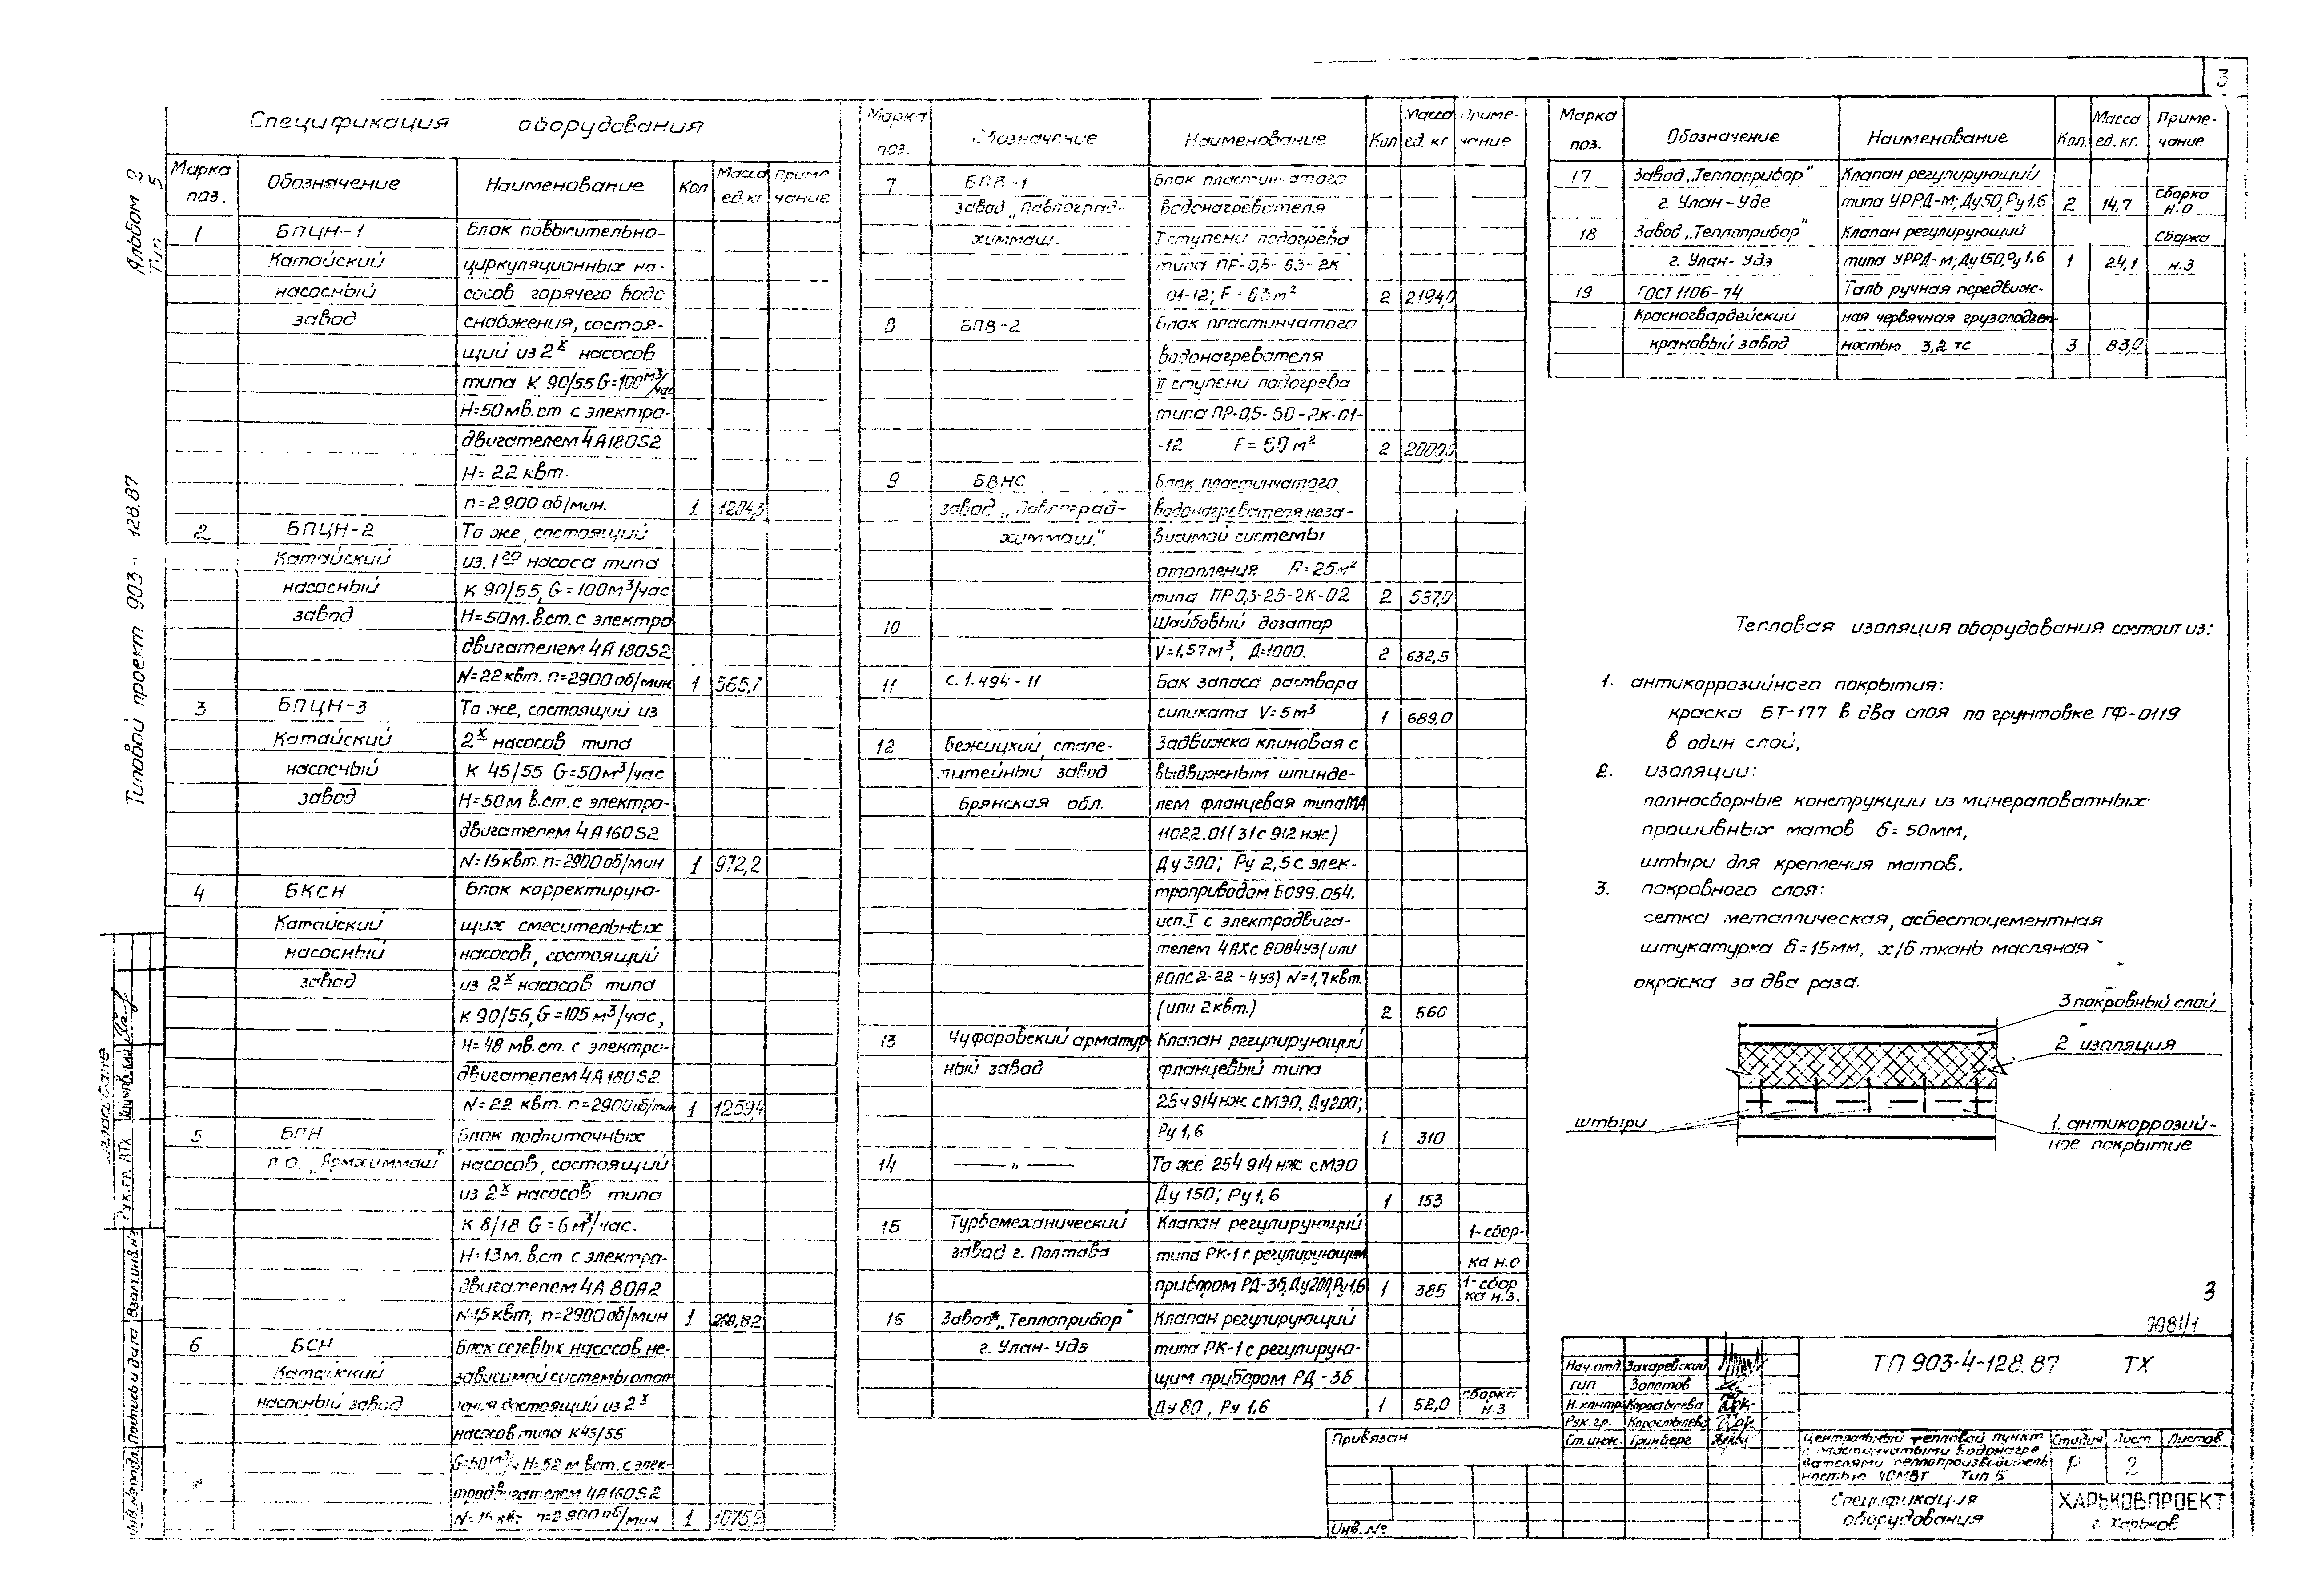 3
Альбом 2
Тип 5
Типовой проект 903-- 128.87
Спецификация оборудования
Марка поз. Обозначение Наименование Кол Масса ед. кг Примечание
1 БПЦН-1 Блок повысительно-
Катайский циркуляционных на-
насосный сосов горячего водо-
завод снабжения, состоя-
щий из 2х насосов
типа К 90/55 G=100 м3/час
Н=50 м в.ст с электро-
двигателем 4А180S2
Н= 22 квт.
n=2900 об/мин. 1 1204,3
2 БПЦН-2 То же, состоящий
Катайский из 1го насоса типа
насосный К 90/55, G=100 м3/час
завод Н=50м. в.ст. с электро
двигателем 4А 180S2
N=22 квт. n=2900 об/мин 1 565,1
3 БПЦН-3 То же, состоящий из
Катайский 2х насосов типа
насосный К 45/55 G=50 м3/час
завод Н=50м в.ст. с электро-
двигателем 4А160S2
N=15 квт. n=2900 об/мин 1 972,2
4 БКСН Блок корректирую-
Катайский щих смесительных
насосный насосов, состоящий
завод из 2х насосов типа
К 90/55, G=105 м3/час,
Н= 48 м в.ст. с электро-
двигателем 4А 180S2
N= 22 квт. n=2900 об/мин 1 1259,4
5 БПН Блок подпиточных
п.о. „Армхиммаш" насосов, состоящий
из 2х насосов типа
К 8/18 G=6 м3/час.
Н=13м. в.ст с электро-
двигателем 4А 80А2
N=1,5 квт, n=2900 об/мин 1
6 БСН Блок сетевых насосов не-
Катайский зависимой системы отоп
насосный завод ления состоящий из 2х
насосов типа К45/55
G=50 м3/ч Н=52 м вст. с элек-
тродвигателем 4А160S2
N=15 квт n=2900 об/мин 1
Марка поз. Обозначение Наименование Кол Масса ед. кг Примечание
7 БПВ-1 Блок пластинчатого
завод „Павлоград- водонагревателя
химмаш. I ступени подогрева
типа ПР-0,5-63-2К
01-12; F=63 м2 2 2194,0
8 БПВ-2 Блок пластинчатого
водонагревателя
II ступени подогрева
типа ПР-0,5-50-2К-01-
-12 F=50 м2 2 2000,0
9 БВНС Блок пластинчатого
завод „Павлоград- водонагревателя неза-
химмаш." висимой системы
отопления F=25м2
типа ПР0,3-25-2К-02 2 537,0
10 Шайбовый дозатор
V=1,57 м3, Д=1000. 2 632,5
11 с. 1.494-11 Бак запаса раствора
силиката V=5 м3 1 689,0
12 Бежицкий стале- Задвижка клиновая с
литейный завод выдвижным шпинде-
Брянская обл. лем фланцевая типа МА
11022.01 (31с 912 нж)
Ду 300; Ру 2,5 с элек-
троприводом Б099.054.
исп. I с электродвига-
телем 4АХс 80В4У3 (или
АОЛС2-22-4У3) N=1,7 квт.
(или 2 квт.) 2 560
13 Чуфаровский арматур Клапан регулирующий
ный завод фланцевый типа
25ч914нж с МЭО, Ду200;
Ру 1,6 1 310
14 — „ — То же 25ч 914 нж с МЭО
Ду 150; Ру 1,6 1 153
15 Турбомеханический Клапан регулирующий 1-сбор-
завод г. Полтава типа РК-1 с регулирующим ка н.о
прибором РД-3б, Ду200, Ру1,6 1 385 1-сбор ка н.з.
16 Завод „Теплоприбор" Клапан регулирующий
г. Улан-Удэ типа РК-1 с регулирую-
щим прибором РД-3б
Ду 80, Ру 1,6 1 52,0 сборка н.з
Марка поз. Обозначение Наименование Кол. Масса ед. кг. Примечание
17 Завод „Теплоприбор" Клапан регулирующий
г. Улан-Уде типа УРРД-м; Ду50, Ру1,6 2 14,7 Сборка н.о
18 Завод „Теплоприбор" Клапан регулирующий Сборка
г. Улан-Удэ типа УРРД-м; Ду150, Ру 1,6 1 24,1 н.з
19 ГОСТ 1106-74 Таль ручная передвиж-
Красногвардейский ная червячная грузоподъем-
крановый завод ностью 3,2 тс 3 83,0
Тепловая изоляция оборудования состоит из:
1. антикоррозийного покрытия:
краска БТ-177 в два слоя по грунтовке ГФ-0119
в один слой,
2. изоляции:
полносборные конструкции из минераловатных
прошивных матов б=50мм,
штыри для крепления матов.
3. покровного слоя:
сетка металлическая, асбестоцементная
штукатурка б=15мм, х/б ткань масляная
окраска за два раза.
3 покровный слой
2 изоляция
штыри
1. антикоррозий-
ное покрытие
3
9981/1
Нач. отд. Захаревский
ГИП Золотов
Н. контр. Коростылева
Рук. гр. Коростылева
Ст. инж. Гринберг
ТП 903-4-128.87 ТХ
Центральный тепловой пункт
с пластинчатыми водонагре
вателями теплопроизводитель
ностью 40МВт Тип 5
Стадия Лист Листов
Р 2
Спецификация
оборудования
ХАРЬКОВПРОЕКТ
г. Харьков
Привязан
Инв. №
Согласовано
Рук. гр. АТХ
Инв. № подл. Подпись и дата Взам. инв. №